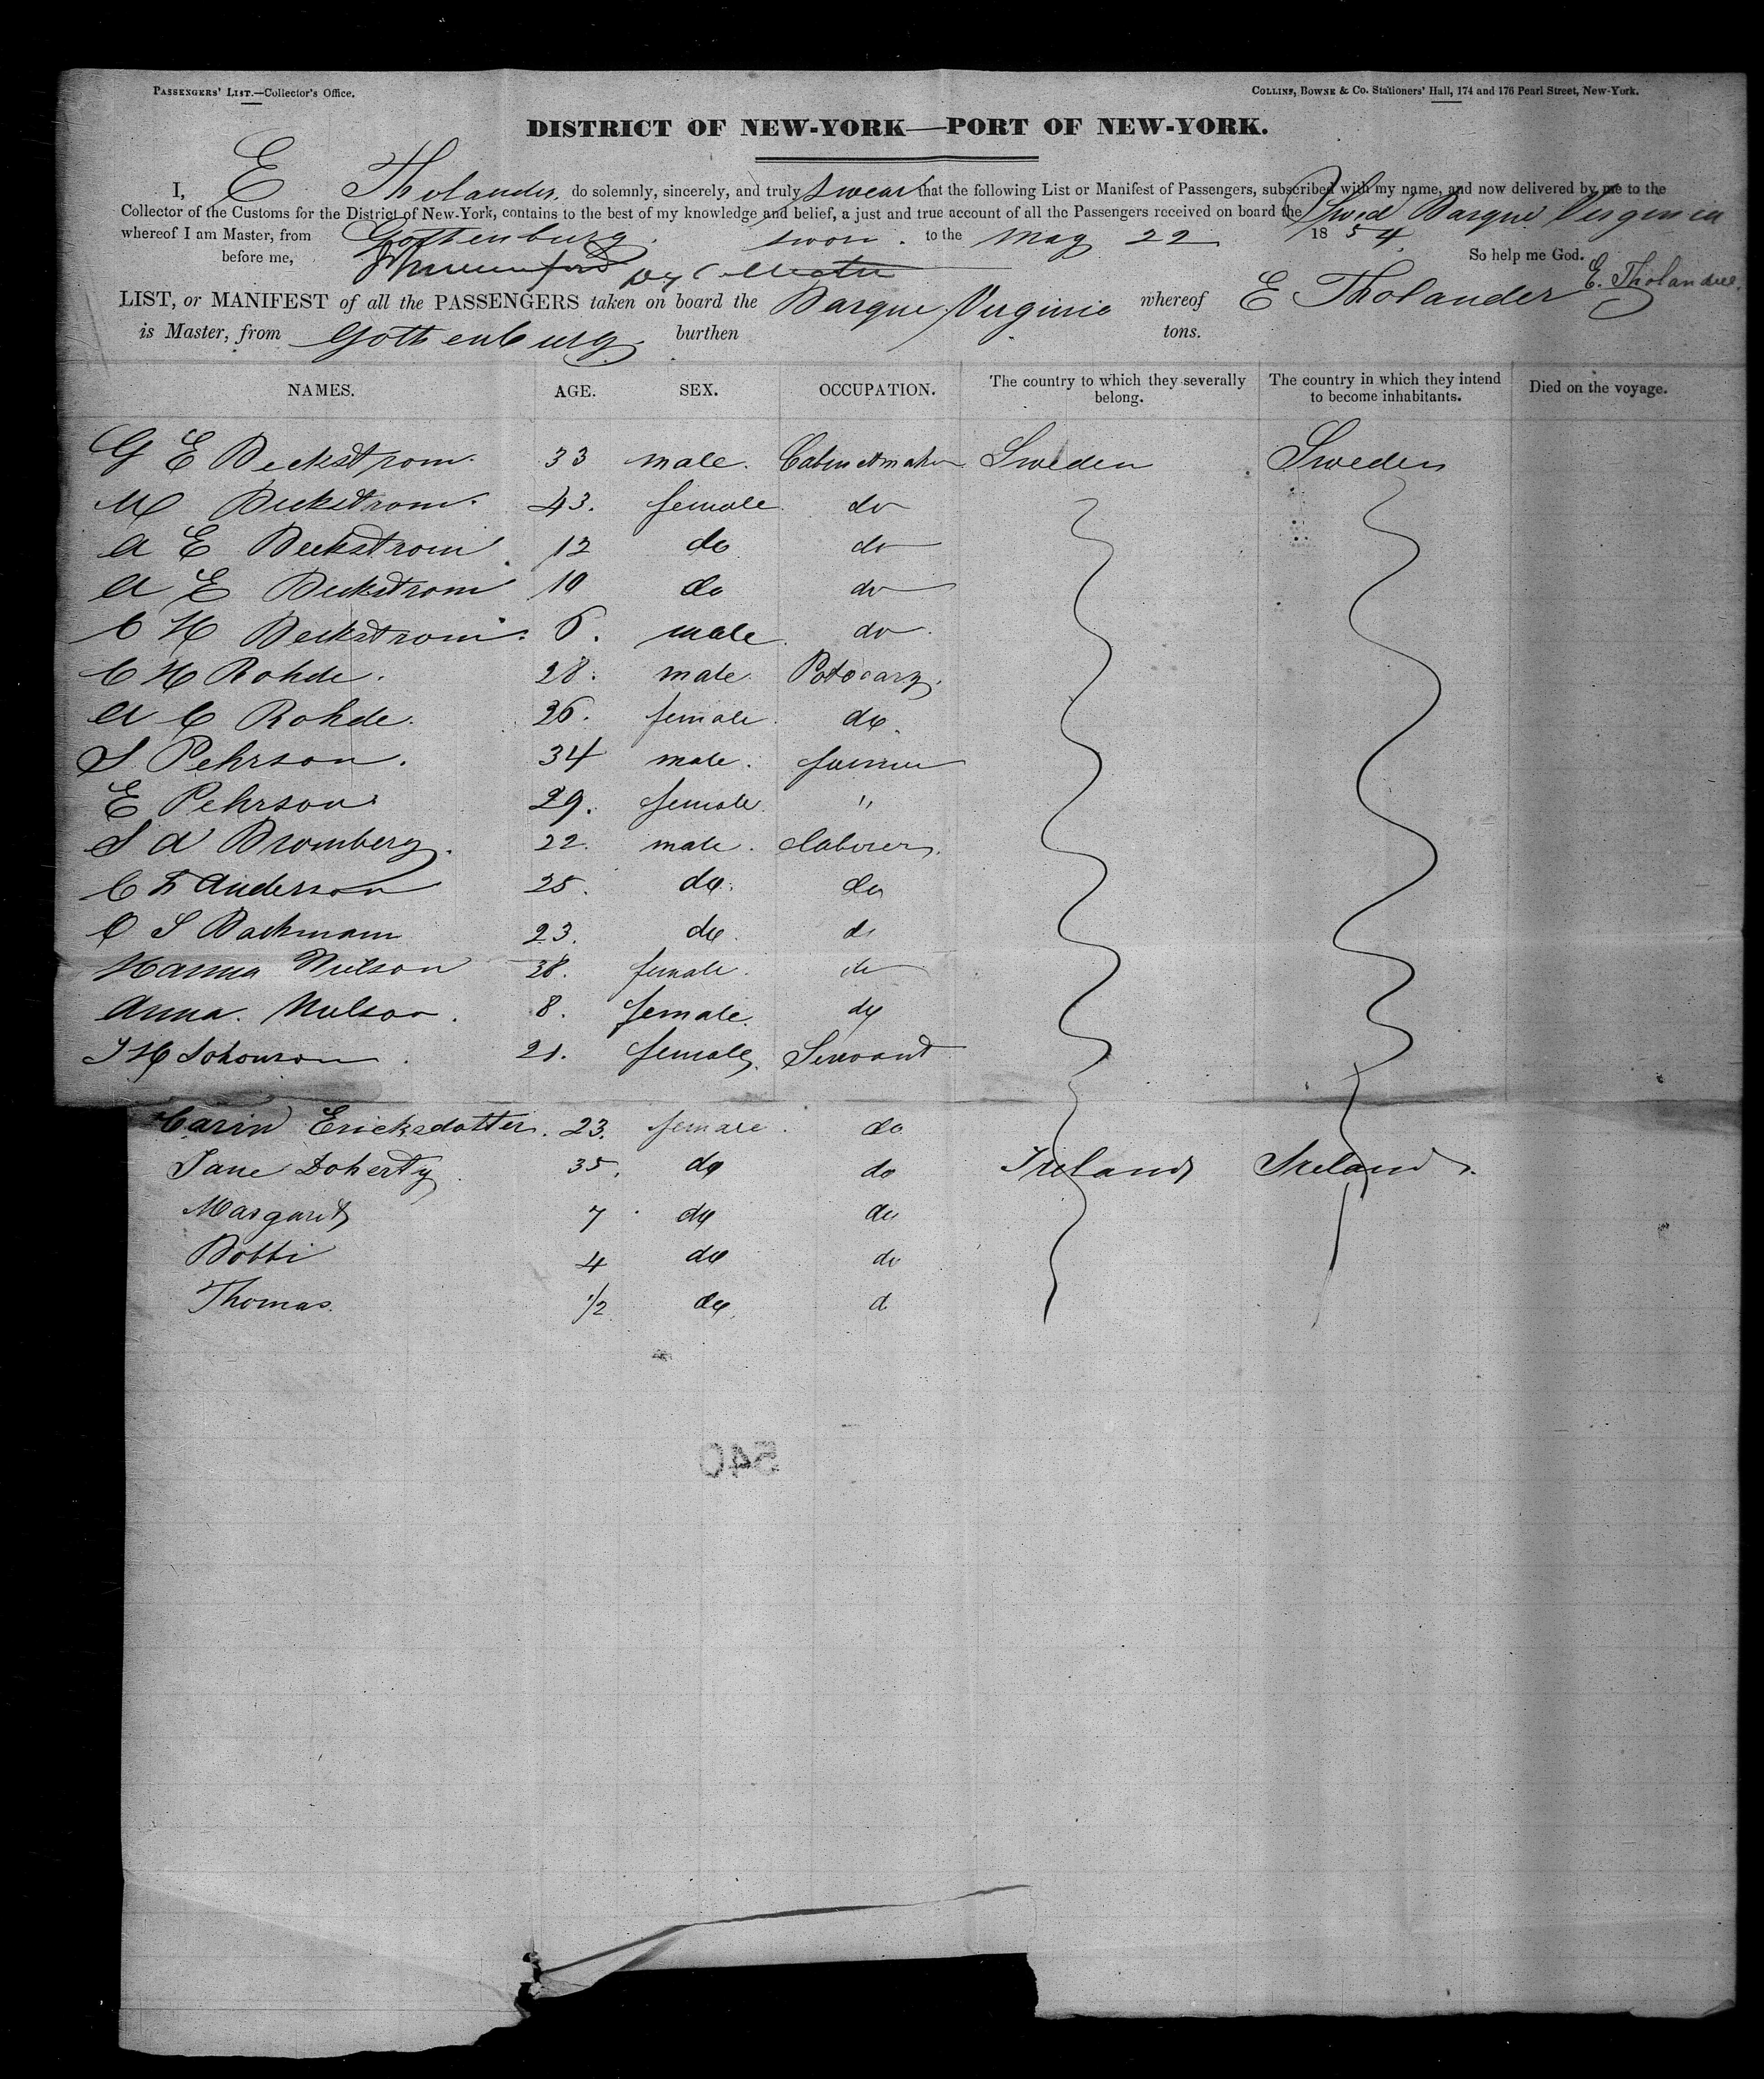 PASSENGERS' LIST.—Collector's Office. COLLINS, BOWNE & Co. Stationers' Hall, 174 and 176 Pearl Street, New-York.
DISTRICT OF NEW-YORK—PORT OF NEW-YORK.
I, E Tholander, do solemnly, sincerely, and truly swear that the following List or Manifest of Passengers, subscribed with my name, and now delivered by me to the
Collector of the Customs for the District of New-York, contains to the best of my knowledge and belief, a just and true account of all the Passengers received on board the Swed Barque Virginia
whereof I am Master, from Gottenburg. sworn. to the May 22 1854.
before me, So help me God. E. Tholander.
LIST, or MANIFEST of all the PASSENGERS taken on board the Barque Virginie whereof E Tholander
is Master, from Gottenburg burthen tons.
NAMES. AGE. SEX. OCCUPATION. The country to which they severally belong. The country in which they intend to become inhabitants. Died on the voyage.
G E Beckstrom. 33 male. Cabinetmaker Sweden Sweden
M Beckstrom. 43. female do
A E Beckstrom 12 do do
A E Beckstrom 10 do do
C H Beckstrom. 6. male do
C H Rohde. 28. male Potocary.
A C Rohde. 26. female do
S Pehrson. 34 male. farmer
E Pehrson 29. female "
S A Bromberg. 22. male. laborer.
C F Anderson 25. do. do
C S Backmann 23. do do
Hanna Nielson 38. female. do
Anna. Nielson. 8. female. do
J H Johonson. 21. female. Servant
Carin Ericksdotter. 23. female. do
Jane Doherty 35. do do Ireland Ireland.
Margarit 7 do do
Bobbi 4 do do
Thomas. 1/2 do d
540